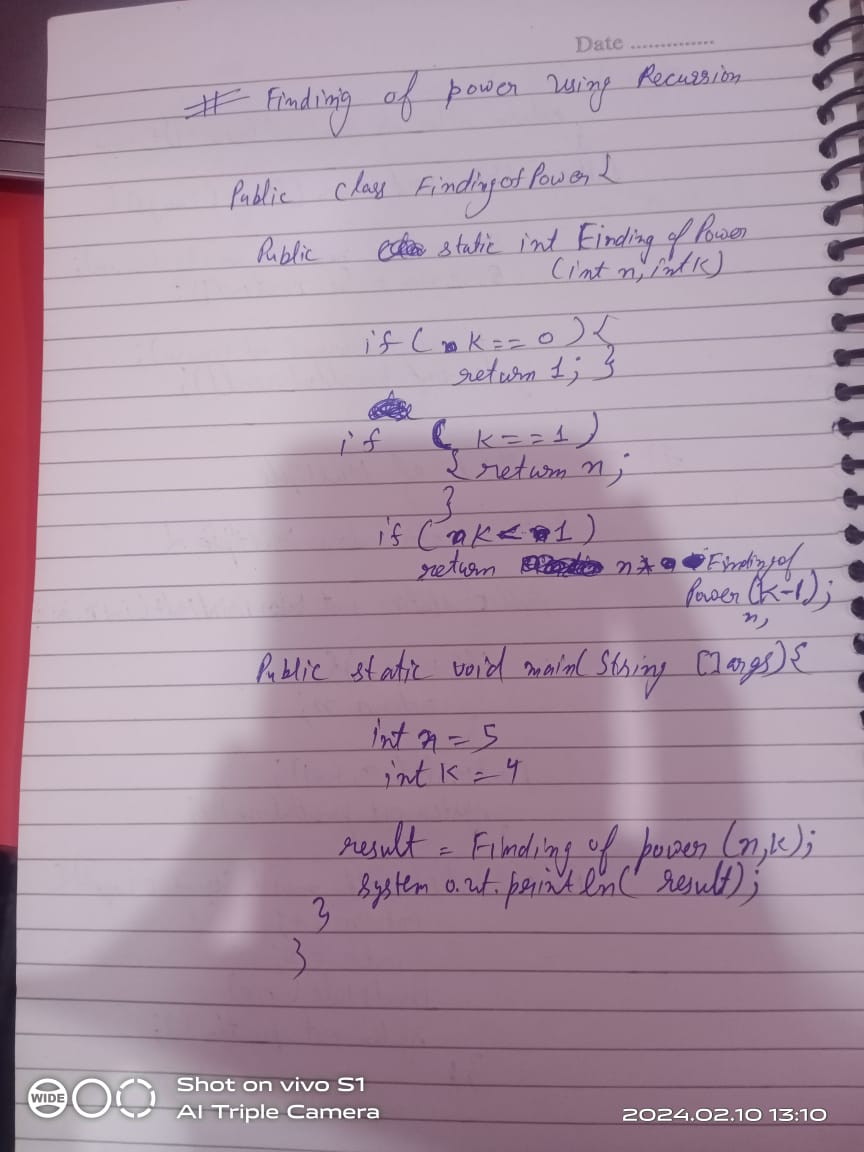 Date ..............
# Finding of power using Recursion
Public class FindingofPower {
Public static int Finding of Power
(int n, int k)
if ( k == 0 ) {
return 1; }
if ( k == 1 )
{ return n ;
}
if ( k < 1 )
return n * Finding of
Power (k-1);
n,
Public static void main( String []args) {
int n = 5
int k = 4
result = Finding of power (n,k);
System out. println( result);
}
}
WIDE
Shot on vivo S1
AI Triple Camera
2024.02.10 13:10